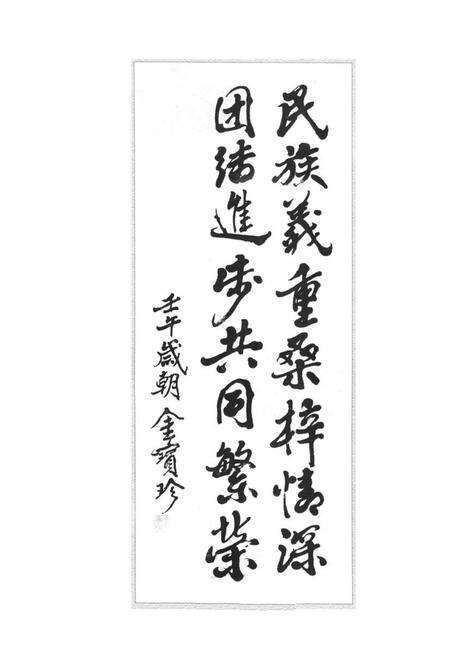 民族義重桑梓情深
团结進步共同繁荣
壬午歲朝 金寶珍